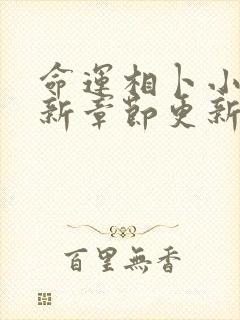 命運相卜小
新章節更新
百里無香